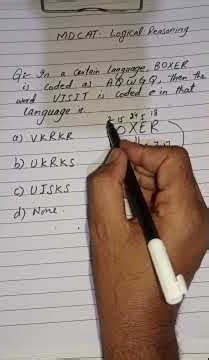 MDCAT: Logical Reasoning
Q:- In a certain language, BOXER
is coded as AQWGQ, then the
word VISIT is coded e in that
language is
2 15 24 5 18
OXER
a) VKRKR
b) UKRKS
c) UJSKS
d) None.